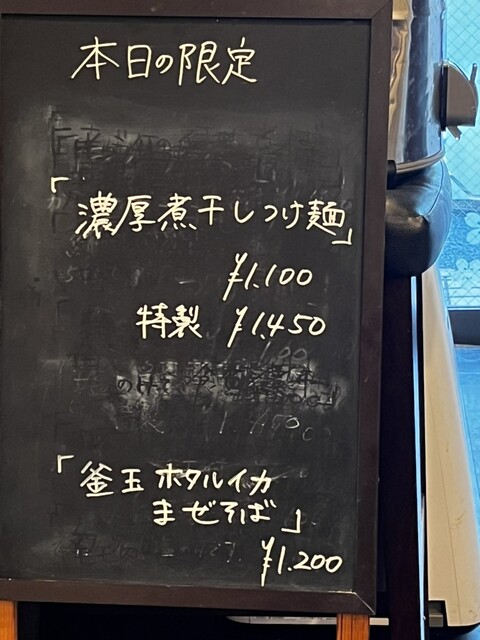 本日の限定
「濃厚煮干しつけ麺」
¥1.100
特製 ¥1.450
「釜玉ホタルイカ
まぜそば」
¥1.200